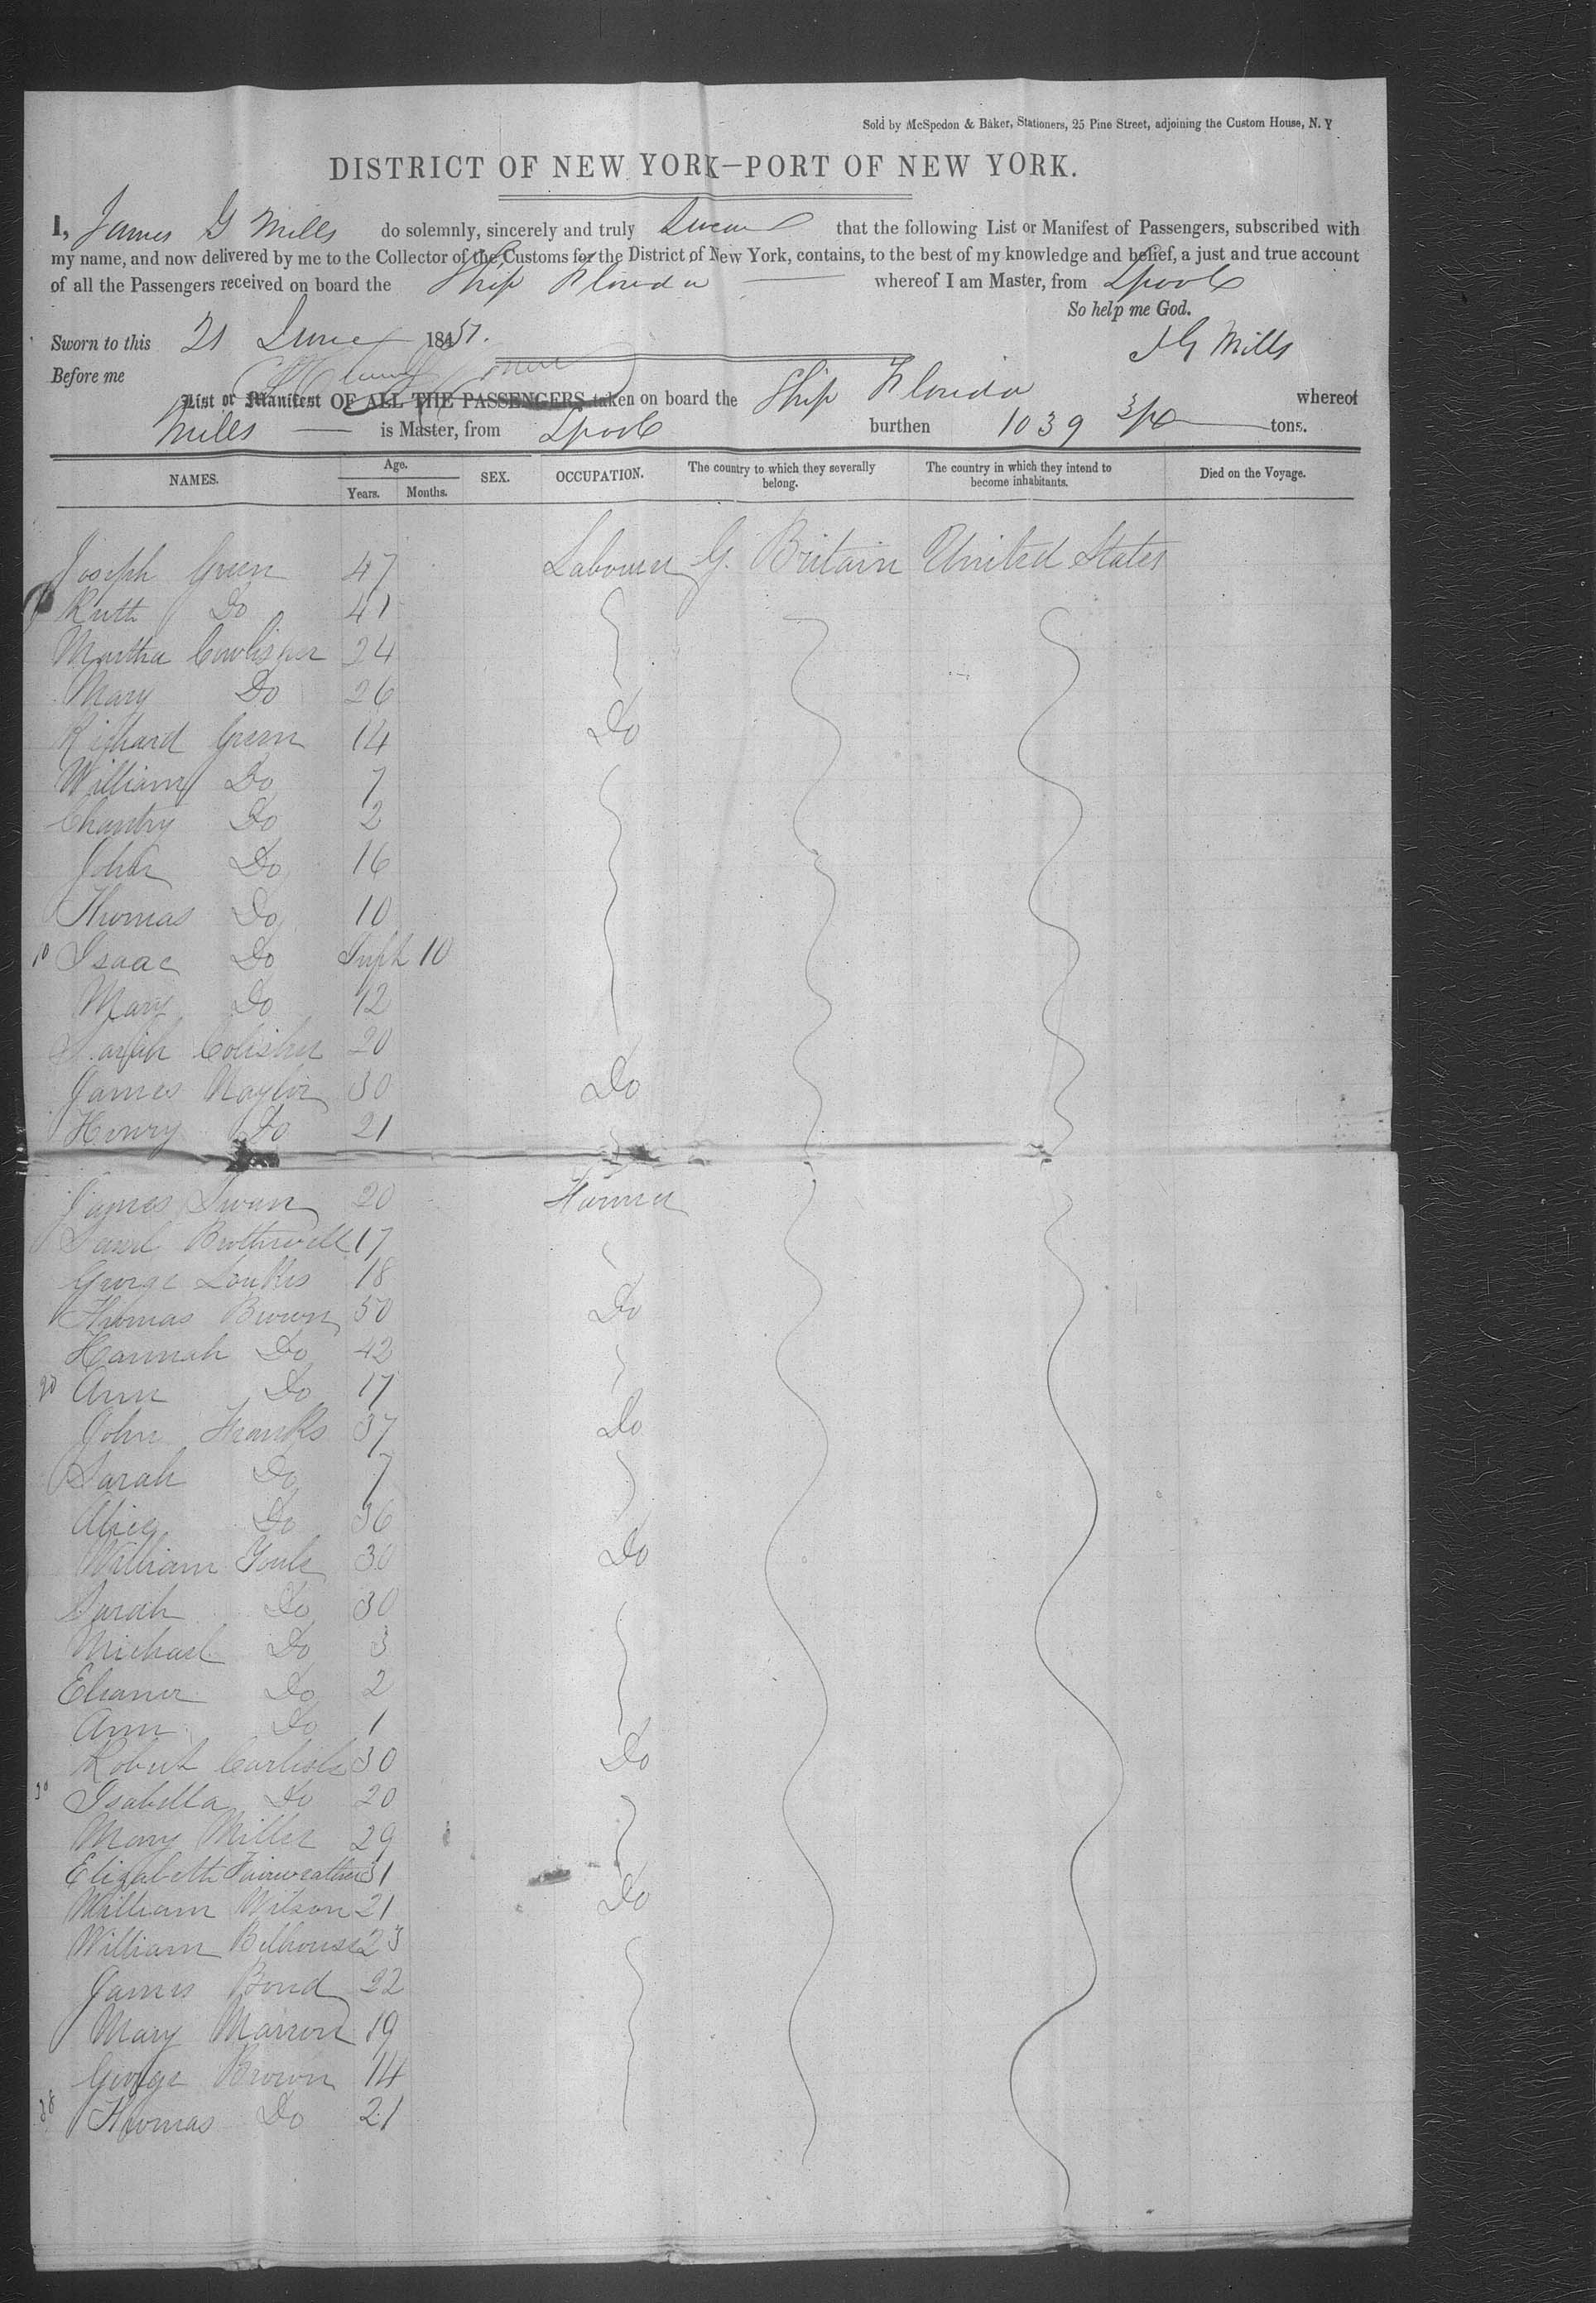 Sold by McSpedon & Baker, Stationers, 25 Pine Street, adjoining the Custom House, N. Y
DISTRICT OF NEW YORK—PORT OF NEW YORK.
I, James G Mills do solemnly, sincerely and truly Swear that the following List or Manifest of Passengers, subscribed with
my name, and now delivered by me to the Collector of the Customs for the District of New York, contains, to the best of my knowledge and belief, a just and true account
of all the Passengers received on board the Ship Florida whereof I am Master, from Lpool
So help me God.
Sworn to this 21 June 1851.
J G Mills
Before me
List or Manifest OF ALL THE PASSENGERS taken on board the Ship Florida whereof
Mills is Master, from Lpool burthen 1039 tons.
NAMES. Age. Years. Months. SEX. OCCUPATION. The country to which they severally belong. The country in which they intend to become inhabitants. Died on the Voyage.
Joseph Green 47 Labourer G. Britain United States
Ruth Do 41
Martha 24
Mary Do 26
Richard Green 14 Do
William Do 7
Do 2
John Do 16
Thomas Do 10
10 Isaac Do Inft 10
Mary Do 12
Sarah Colisher 20
James Naylor 30 Do
Henry Do 21
James Swan 20 Farmer
Saml Brotherwell 17
George 18
Thomas Brown 50 Do
Hannah Do 42
20 Ann Do 17
John Franks 37 Do
Sarah Do 7
Alice Do 36
William 30 Do
Sarah Do 30
Michael Do 3
Eleanor Do 2
Ann Do 1
Robert Carlisle 30 Do
30 Isabella Do 20
Mary Miller 29
Elizabeth Fairweather 31
William Wilson 21 Do
William Belhouse 23
James Bond 22
Mary Marron 19
George Brown 14
38 Thomas Do 21